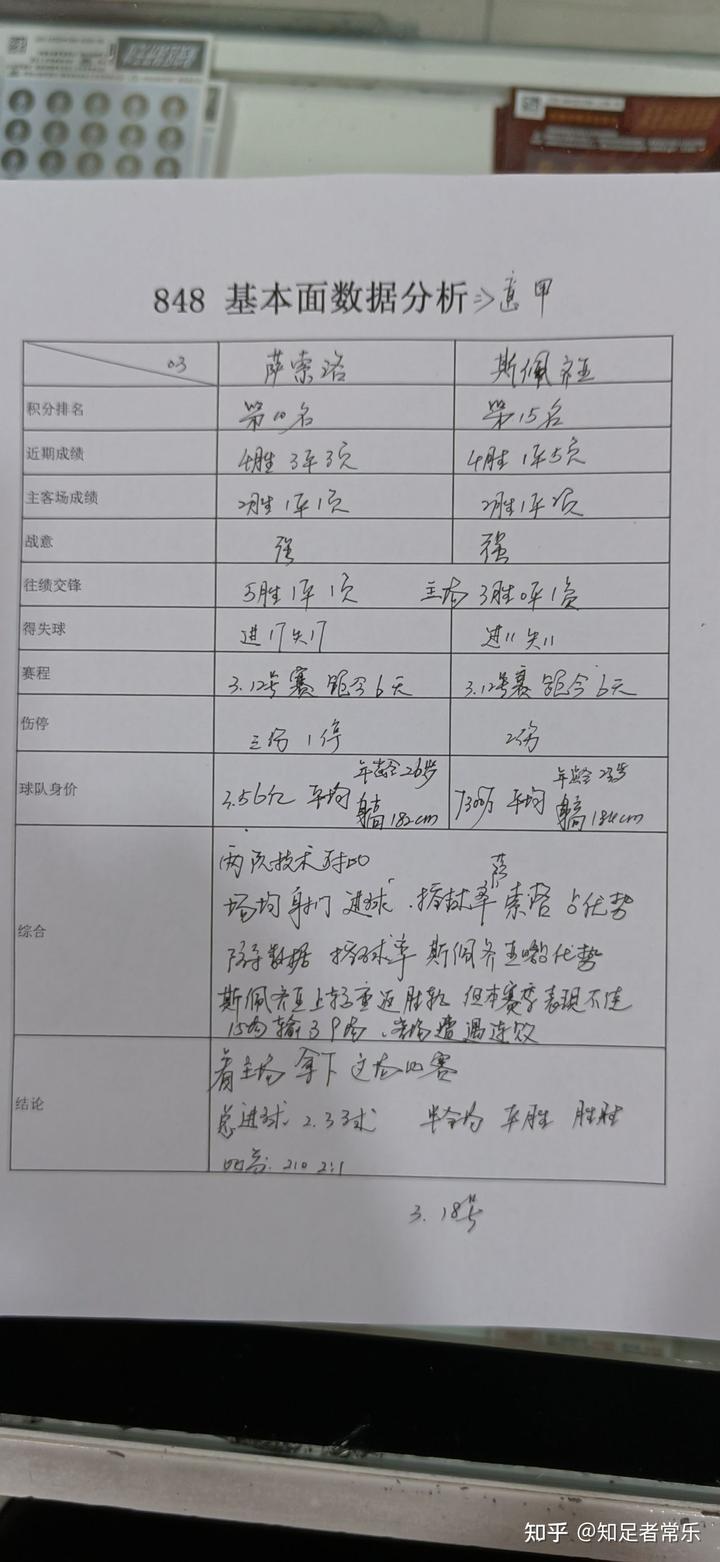 848 基本面数据分析 => 意甲
03 萨索洛 斯佩齐亚
积分排名 第10名 第15名
近期成绩 4胜3平3负 4胜1平5负
主客场成绩 2胜1平1负 2胜1平2负
战意 强 强
往绩交锋 5胜1平1负 主场3胜0平1负
得失球 进17失17 进11失11
赛程 3.12号赛 距今6天 3.12号赛 距今6天
伤停 三伤1停 2伤
球队身价 3.56亿 平均 年龄26岁 身高182cm 7300万 平均 年龄23岁 身高184cm
综合 两队技术对比
场均射门 进球 率 萨索洛 占优势
数据 球率 斯佩齐亚 优势
斯佩齐亚上轮 但本赛季表现不佳
15场输了9场 客场遭遇连败
结论 主场 拿下 这场比赛
总进球 2.3球 半全场 平胜 胜胜
比分: 2:0 2:1
3.18号
知乎 @知足者常乐